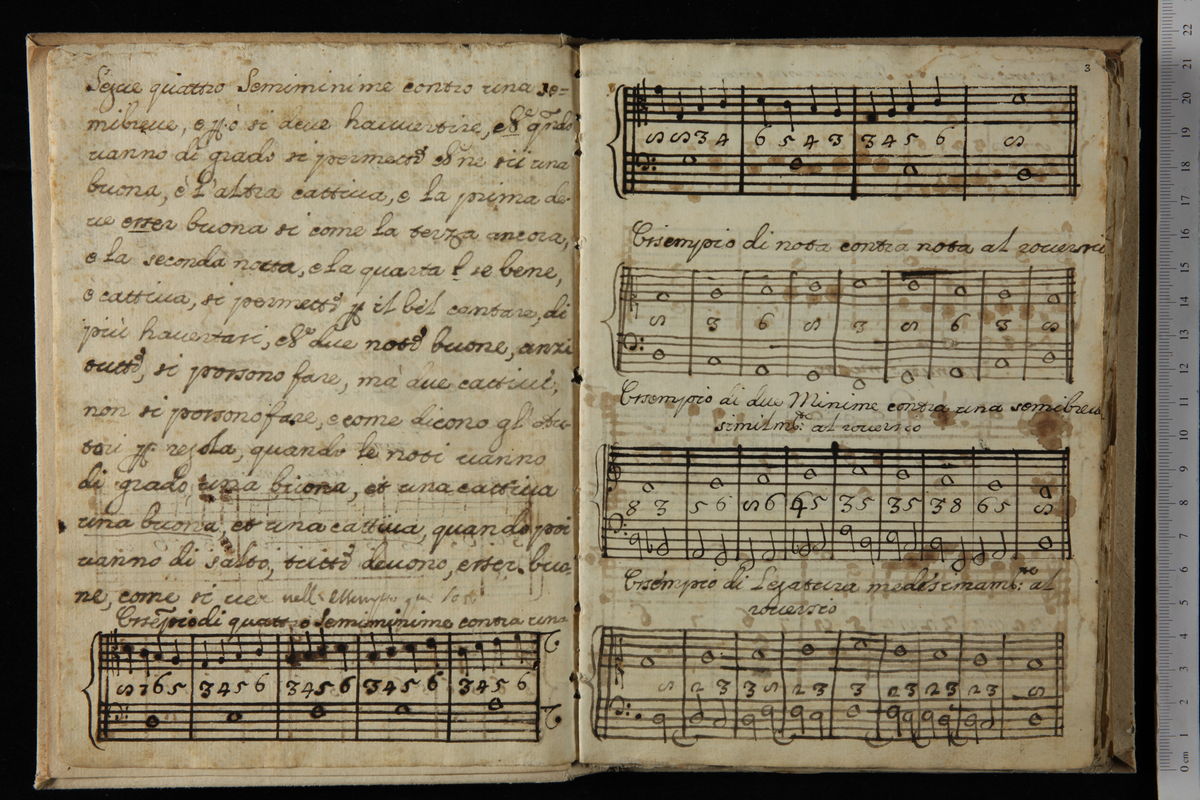 Segue quattro Semiminime contro una se=
mibreve, e però si deve havvertire, che qndo
vanno di grado si permette che ne sii una
buona, è l'altra cattiva, e la prima de-
ve esser buona si come la terza ancora,
e la seconda notta, e la quarta se bene,
e cattiva, si permette p il bel cantare, di
più havertasi, che due note buone, anzi
tutte, si possono fare, mà due cattive,
non si possono fare, e come dicono gl'Au-
tori p regola, quando le noti vanno
di grado, una buona, et una cattiva
una buona, et una cattiva, quando poi
vanno di salto, tutte devono, esser buo-
ne, come si ver nell'essempio qui
Essempio di quattro Semiminime contra una
S 7 6 5 3 4 5 6 3 4 5 6 3 4 5 6 3 4 5 6
3
S S 3 4 6 5 4 3 3 4 5 6 S
Essempio di nota contra nota al roversci
S 3 6 S 3 S 6 3 S
Essempio di due Minime contra una semibreve
similmte: al roverscio
8 3 5 6 S 6 6 5 3 5 3 5 3 8 6 5 S
Essempio di Legatura medesimamte: al
roverscio
S 2 3 3 S 2 3 3 2 3 2 3 2 3 S
0 cm 1 2 3 4 5 6 7 8 9 10 11 12 13 14 15 16 17 18 19 20 21 22